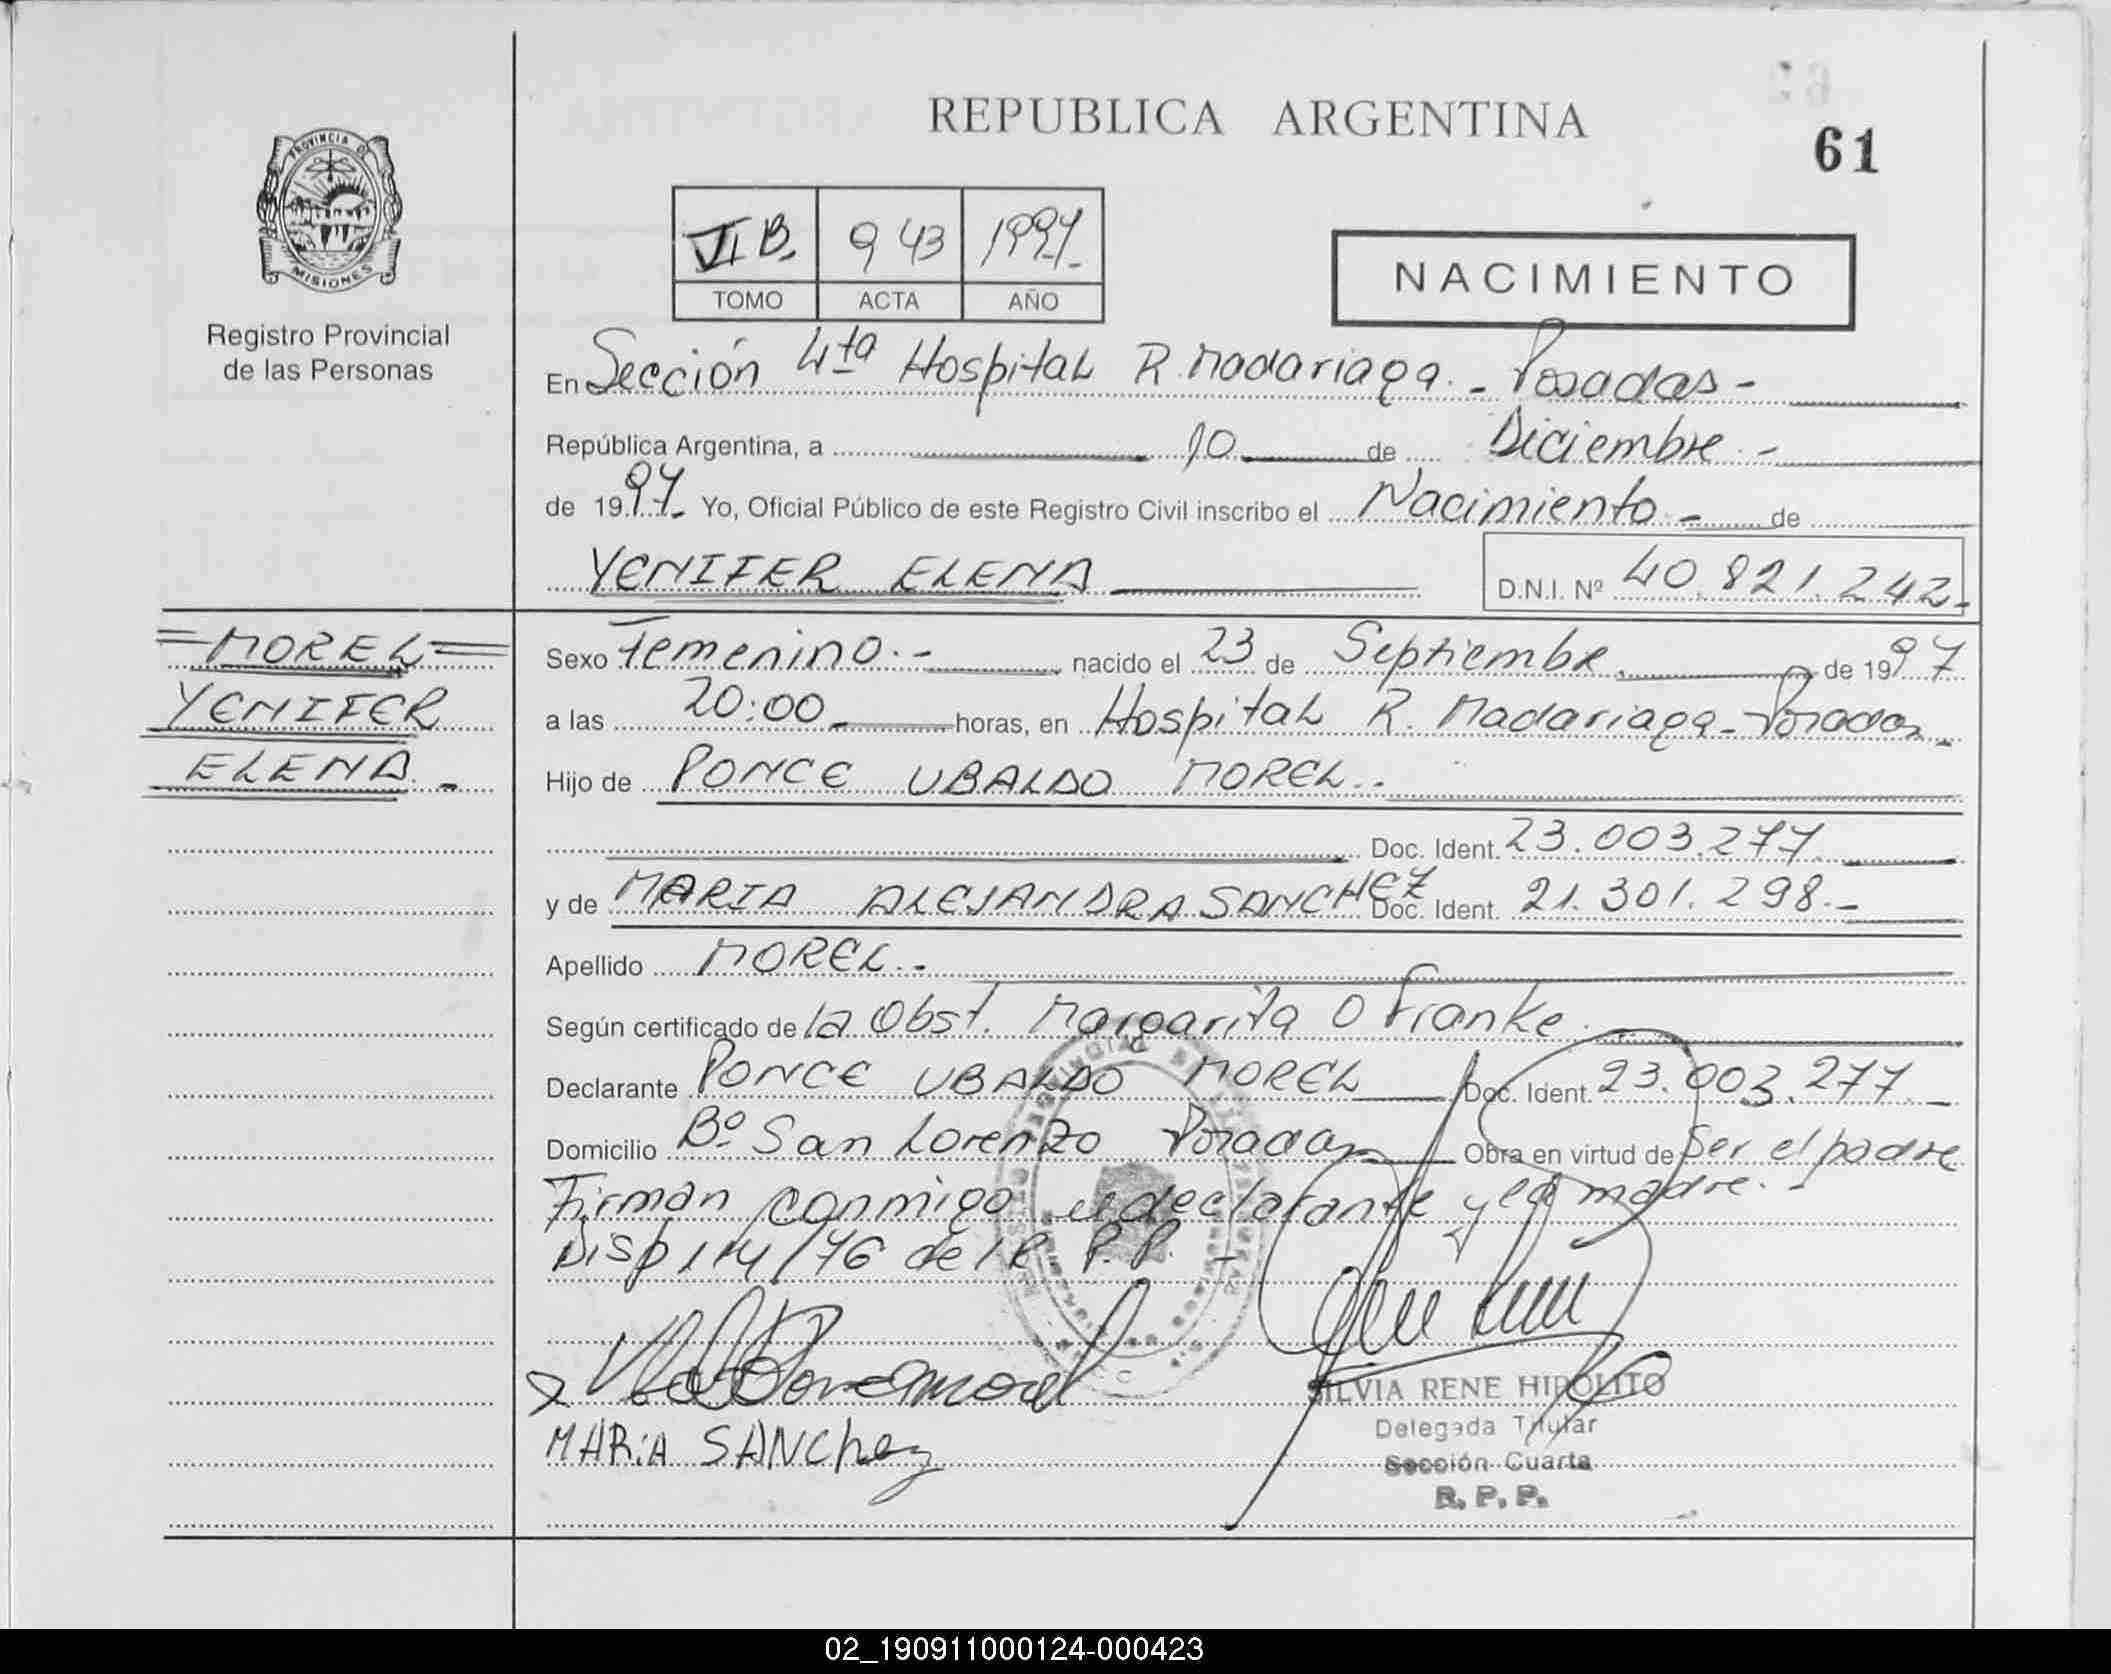 REPUBLICA ARGENTINA
61
PROVINCIA DE
MISIONES
Registro Provincial
de las Personas
VI B. 943 1997.-
TOMO ACTA AÑO
NACIMIENTO
En Sección 4ta Hospital R. Madariaga.- Posadas-
República Argentina, a 10 de Diciembre.-
de 1997.- Yo, Oficial Público de este Registro Civil inscribo el Nacimiento- de
YENIFER ELENA D.N.I. Nº 40.821.242-
=MOREL=
YENIFER
ELENA.-
Sexo Femenino.- nacido el 23 de Septiembre. de 1997
a las 20:00- horas, en Hospital R. Madariaga-Posadas-
Hijo de PONCE UBALDO MOREL.-
Doc. Ident. 23.003.277.
y de MARIA ALEJANDRA SANCHEZ Doc. Ident. 21.301.298.-
Apellido MOREL.-
Según certificado de la Obst. Margarita O Franke.
Declarante PONCE UBALDO MOREL Doc. Ident. 23.003.277.-
Domicilio Bº San Lorenzo Posadas Obra en virtud de Ser el padre
Firman conmigo el declarante y la madre.-
Disp 114/76 del R.P.P.-
MARiA SANChez
SILVIA RENE HIPOLITO
Delegada Titular
Sección Cuarta
R. P. P.
02_190911000124-000423